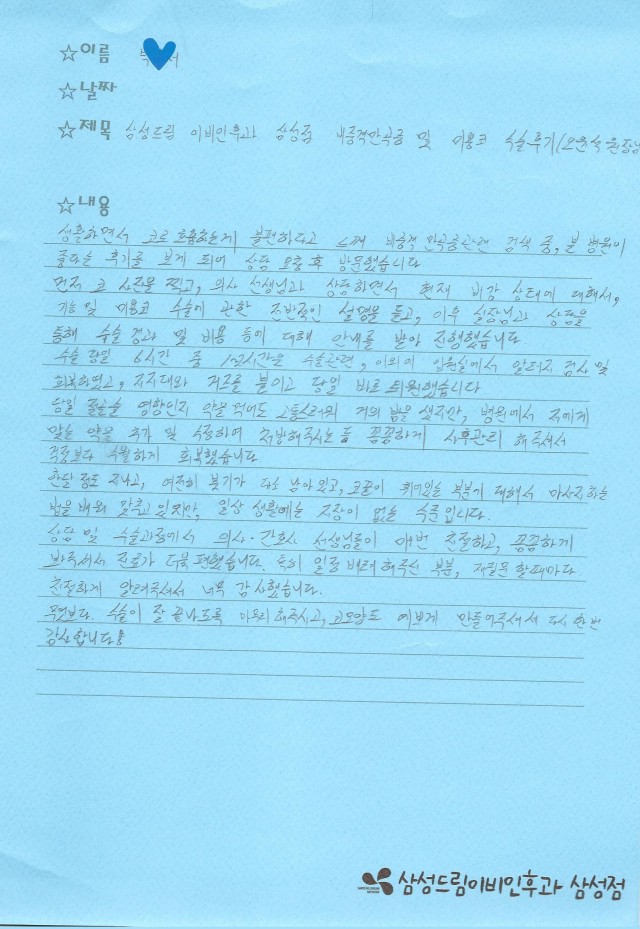 ☆이름
☆날짜
☆제목 삼성드림 이비인후과 삼성점 비중격만곡증 및 미용코 수술후기(오윤석 원장님
☆내용
생활하면서 코로 호흡하는게 불편하다고 느껴 비중격 만곡증관련 검색 중, 본 병원이
좋다는 후기를 보게 되어 상담 요청 후 방문했습니다
먼저 코 사진을 찍고, 의사 선생님과 상담하면서 현재 비강 상태에 대해서,
기능 및 미용코 수술에 관한 전반적인 설명을 듣고, 이후 실장님과 상담을
통해 수술 경과 및 비용 등에 대해 안내를 받아 진행했습니다.
수술 당일 6시간 중 1~2시간은 수술관련, 이외에 입원실에서 알러지 검사 및
회복하였고, 지지대와 거즈를 붙이고 당일 바로 퇴원했습니다
당일 영향인지 약을 먹어도 고통스러워 거의 밤을 샜지만, 병원에서 저에게
맞는 약을 추가 및 수정하여 처방해주시는 등 꼼꼼하게 사후관리 해주셔서
걱정보다 수월하게 회복했습니다.
한달 정도 지나고, 여전히 붓기가 다소 남아있고, 코끝이 휘어있는 부분에 대해서 마사지하는
법을 배워 맞추고 있지만, 일상 생활에는 지장이 없는 수준입니다.
상담 및 수술과정에서 의사·간호사 선생님들이 매번 친절하고, 꼼꼼하게
봐주셔서 진료가 더욱 편했습니다. 특히 일정 배려해주신 부분, 재질문 할때마다
친절하게 알려주셔서 너무 감사했습니다.
무엇보다. 수술이 잘 끝나도록 마무리 해주시고, 코모양도 예쁘게 만들어주셔서 다시 한번
감사합니다!
삼성드림이비인후과 삼성점